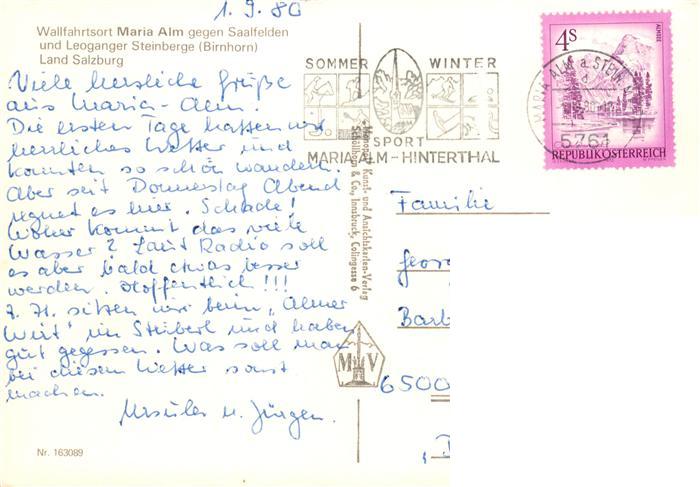 1.9.80
Wallfahrtsort Maria Alm gegen Saalfelden
und Leoganger Steinberge (Birnhorn)
Land Salzburg
Viele herzliche Grüße
aus Maria-Alm.
Die ersten Tage hatten wir
herrliches Wetter und
konnten so schön wandern.
Aber seit Donnerstag Abend
regnet es hier. Schade!
Woher kommt das viele
Wasser? Laut Radio soll
es aber bald etwas besser
werden. Hoffentlich!!!
z. Zt. sitzen wir beim "Almer
Wirt" im Stüberl und haben
gut gegessen. Was soll man
bei diesem Wetter sonst
machen.
Ursula u. Jürgen.
Nr. 163089
SOMMER WINTER
SPORT
MARIA ALM - HINTERTHAL
Kunst- und Ansichtskarten-Verlag
Schöllhorn & Co., Innsbruck, Colingasse 6
M V
4S
ALMSEE
REPUBLIK ÖSTERREICH
MARIA ALM a. STEIN
5761
Familie
Georg
Barb
6500